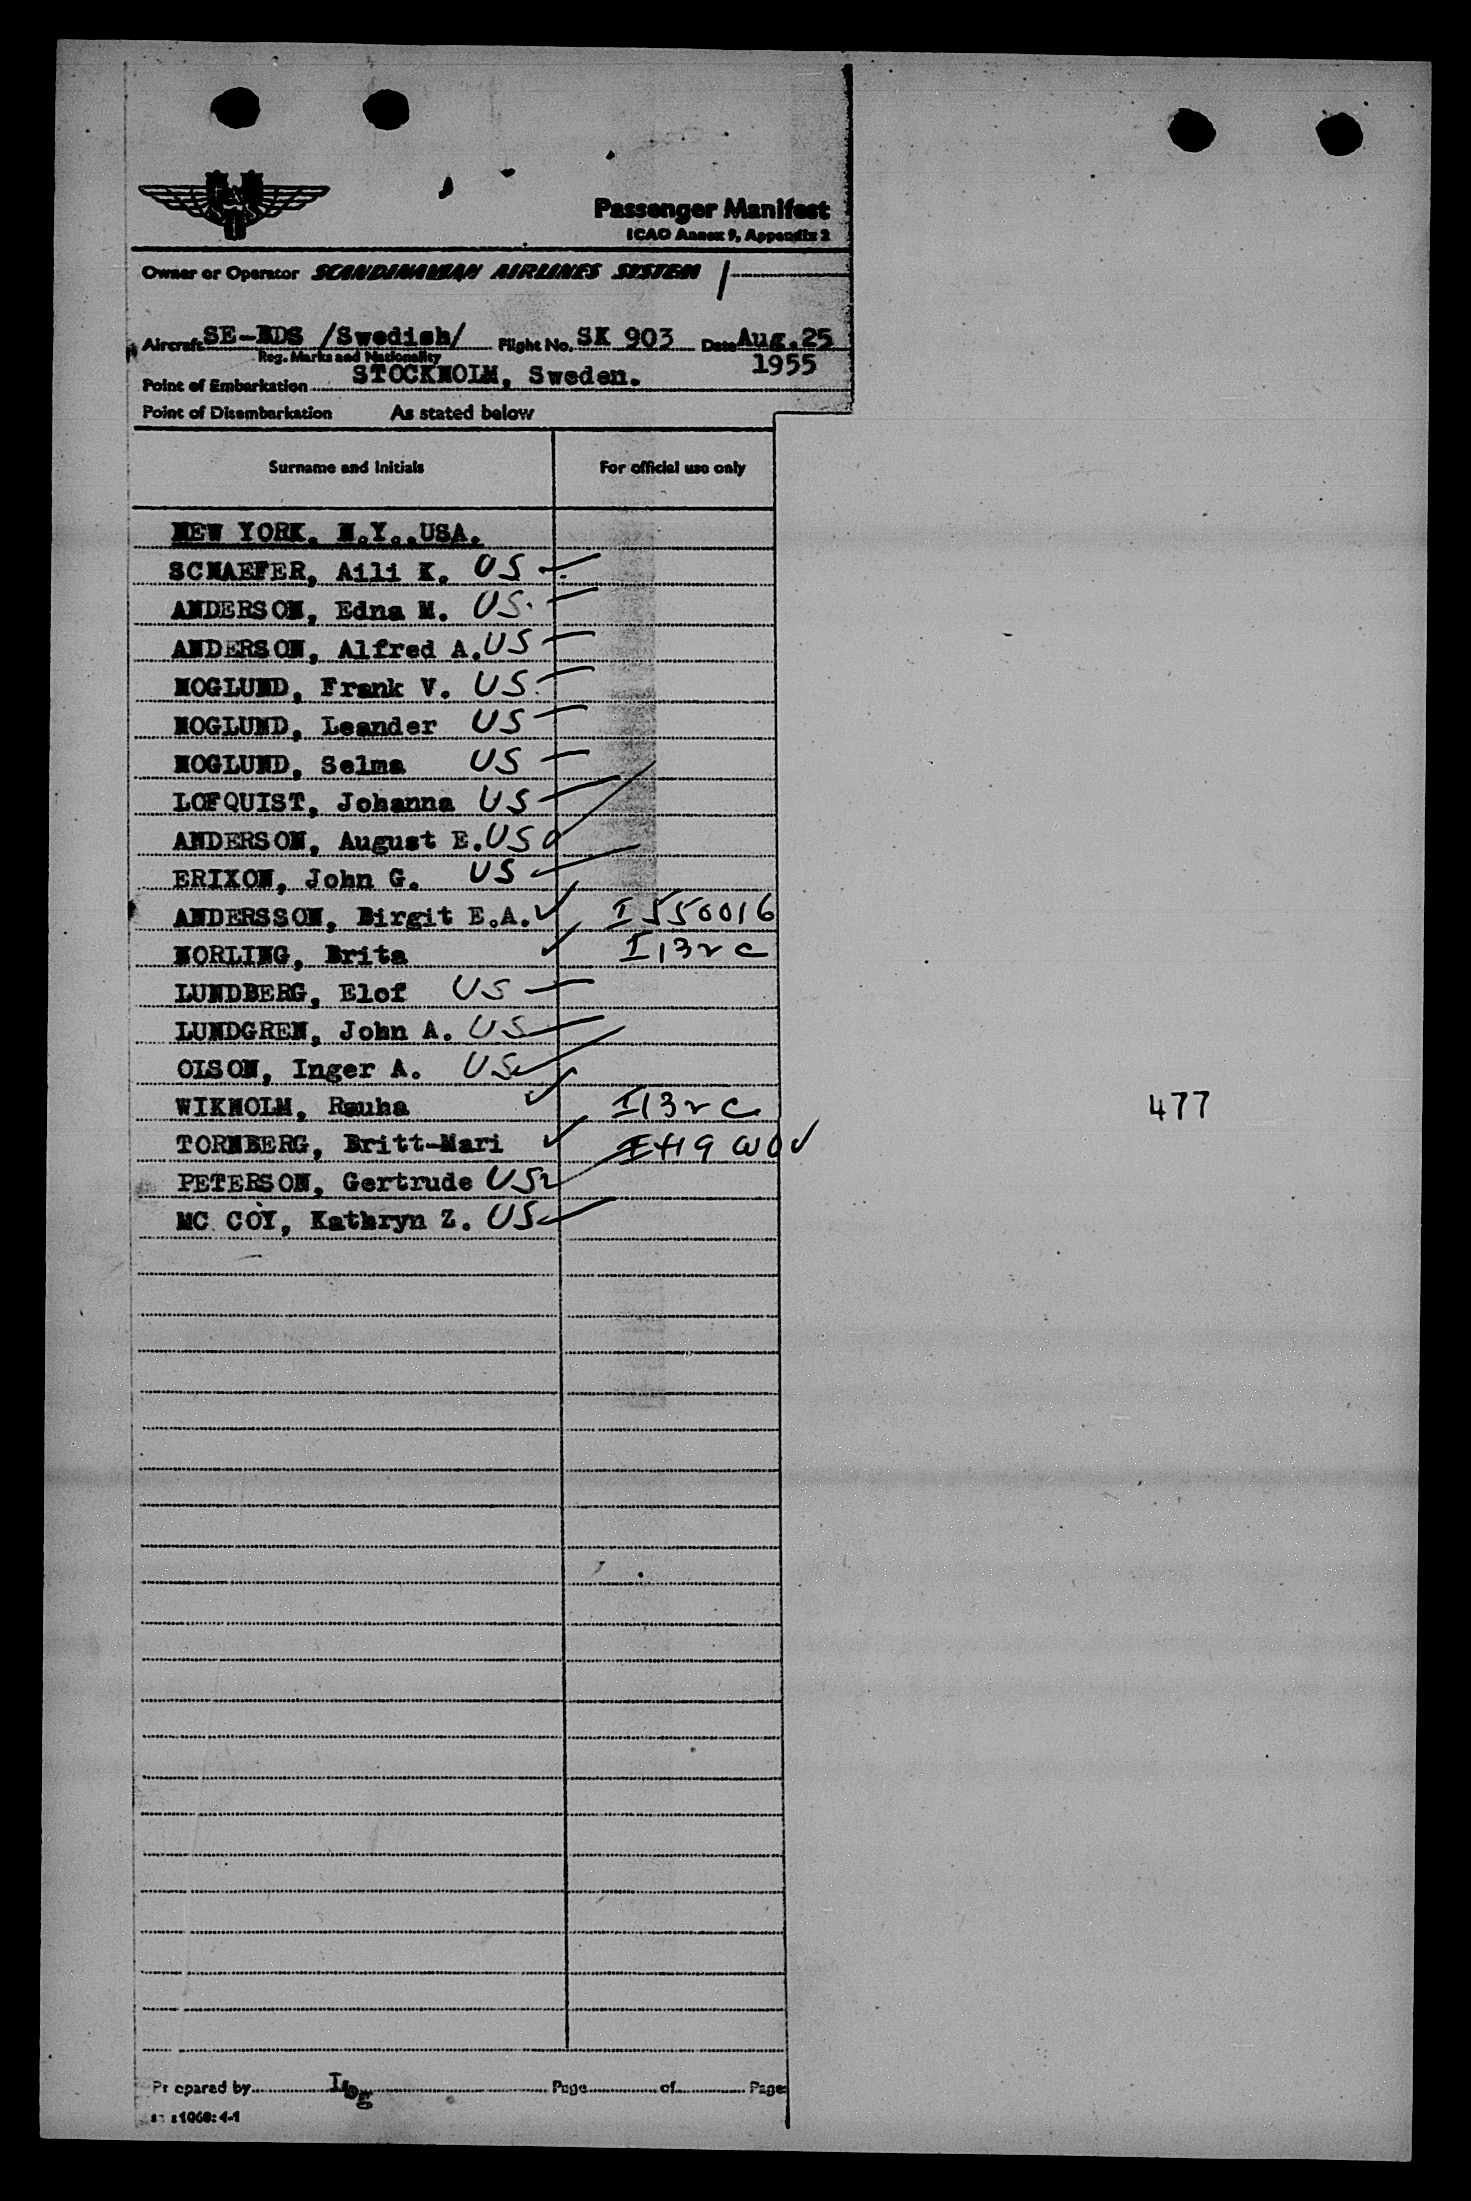 Passenger Manifest
ICAO Annex 9, Appendix 2
Owner or Operator SCANDINAVIAN AIRLINES SYSTEM
Aircraft SE-BDS /Swedish/ Flight No. SK 903 Date Aug. 25
Reg. Marks and Nationality
1955
Point of Embarkation STOCKHOLM, Sweden.
Point of Disembarkation As stated below
Surname and Initials For official use only
NEW YORK. N.Y., USA.
SCHAEFER, Aili K. US
ANDERSON, Edna M. US
ANDERSON, Alfred A. US
HOGLUND, Frank V. US
HOGLUND, Leander US
HOGLUND, Selma US
LOFQUIST, Johanna US
ANDERSON, August E. US
ERIXON, John G. US
ANDERSSON, Birgit E.A. ✓ I 550016
NORLING, Brita ✓ I 132 C
LUNDBERG, Elof US
LUNDGREN, John A. US
OLSON, Inger A. US
WIKHOLM, Rauha ✓ I 132 C
477
TORNBERG, Britt-Mari ✓
PETERSON, Gertrude US
MC COY, Kathryn Z. US
Prepared by Page of Page
1060: 4-1